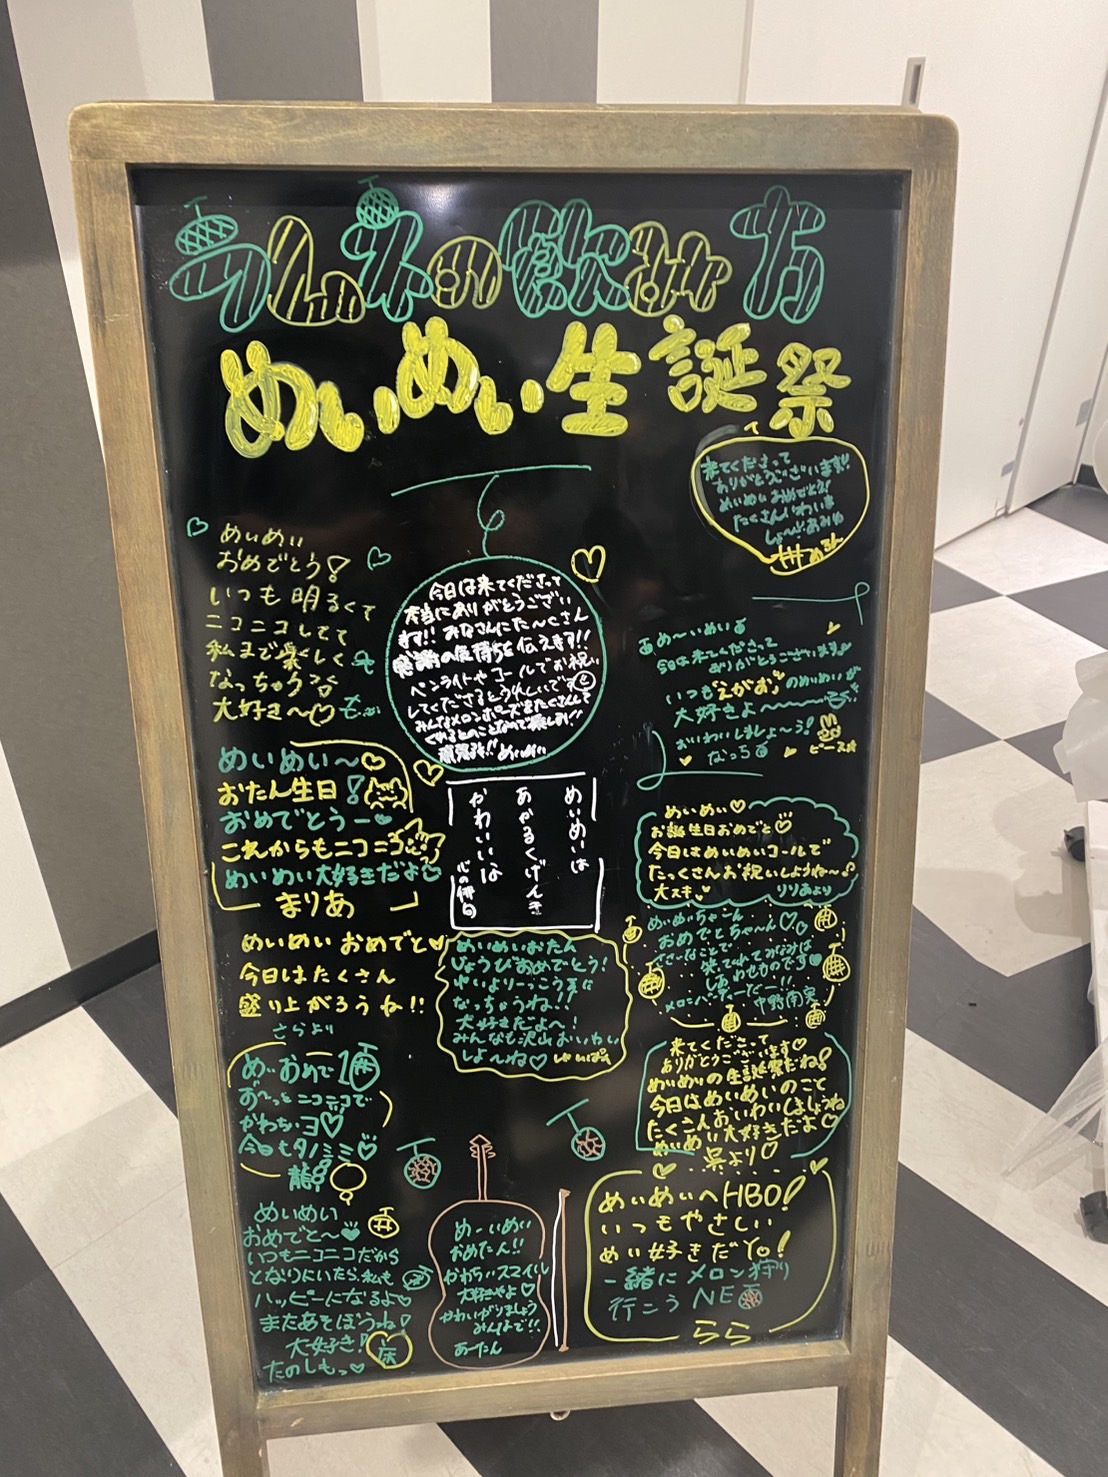 ラムネの飲み方
めいめい生誕祭
来てくださって
ありがとうございます!!
めいめいおめでとう!
たくさんいわいま
しょ〜!
めいめい
おめでとう!
いつも明るくて
ニコニコしてて
私まで楽しく
なっちゃう
大好き〜♡
今日は来てくださって
本当にありがとうござい
ます!! みなさんにた〜くさん
感謝の気持ちを伝えます!!
ペンライトやコールでお祝い
してくださるとうれしいです
みんなメロンポーズをたくさんして
くれるとのことなので
めいめい
あめ〜いめい
今日は来てくださって
ありがとうございます!
いつもえがおのめいめいが
大好きよ〜
おいわいしましょ〜う!
ピース
なっち
めいめい〜♡
おたん生日!
おめでとうー
これからもニコニコ
めいめい大好きだよ♡
まりあ
めいめいは
あかるくげんき
かわいいな
心の俳句
めいめい♡
お誕生日おめでと♡
今日はめいめいコールで
たっくさんお祝いしようね〜♪
大スキ♥
りりあより
めいめい おめでと♥
今日はたくさん
盛り上がろうね!!
さらより
めいめいおたん
じょうびおめでとう!
なっちゃうね!!
大好きだよ〜!
みんなも沢山おいわい
しよ〜ね♡
めいめいちゃん
おめでとちゃ〜ん♡
笑ってれてみなみは
しあわせものです
メロンパーティーだー!!
中野南実
来てくださって
ありがとうございます♡
めいめいの生誕祭だね!
今日はめいめいのこと
たくさんおいわいしましょうね
めいめい大好きだよ♡
呉より♡
めぃおめで
ず〜っとニコニコで
かわちぃヨ♡
今日もタノシミ♡
めいめい
おめでと〜♥
いつもニコニコだから
となりにいたら私も
ハッピーになるよ♡
またあそぼうね!
大好き!
たのしもっ♥
めーいめい
おめたん!!
かわちぃスマイル
大好きやよ♡
おいわいしましょう
みんなで!!
あーたん
めいめいへHBD!
いつもやさしい
めい好きだYo!
一緒にメロン狩り
行こうNE
らら